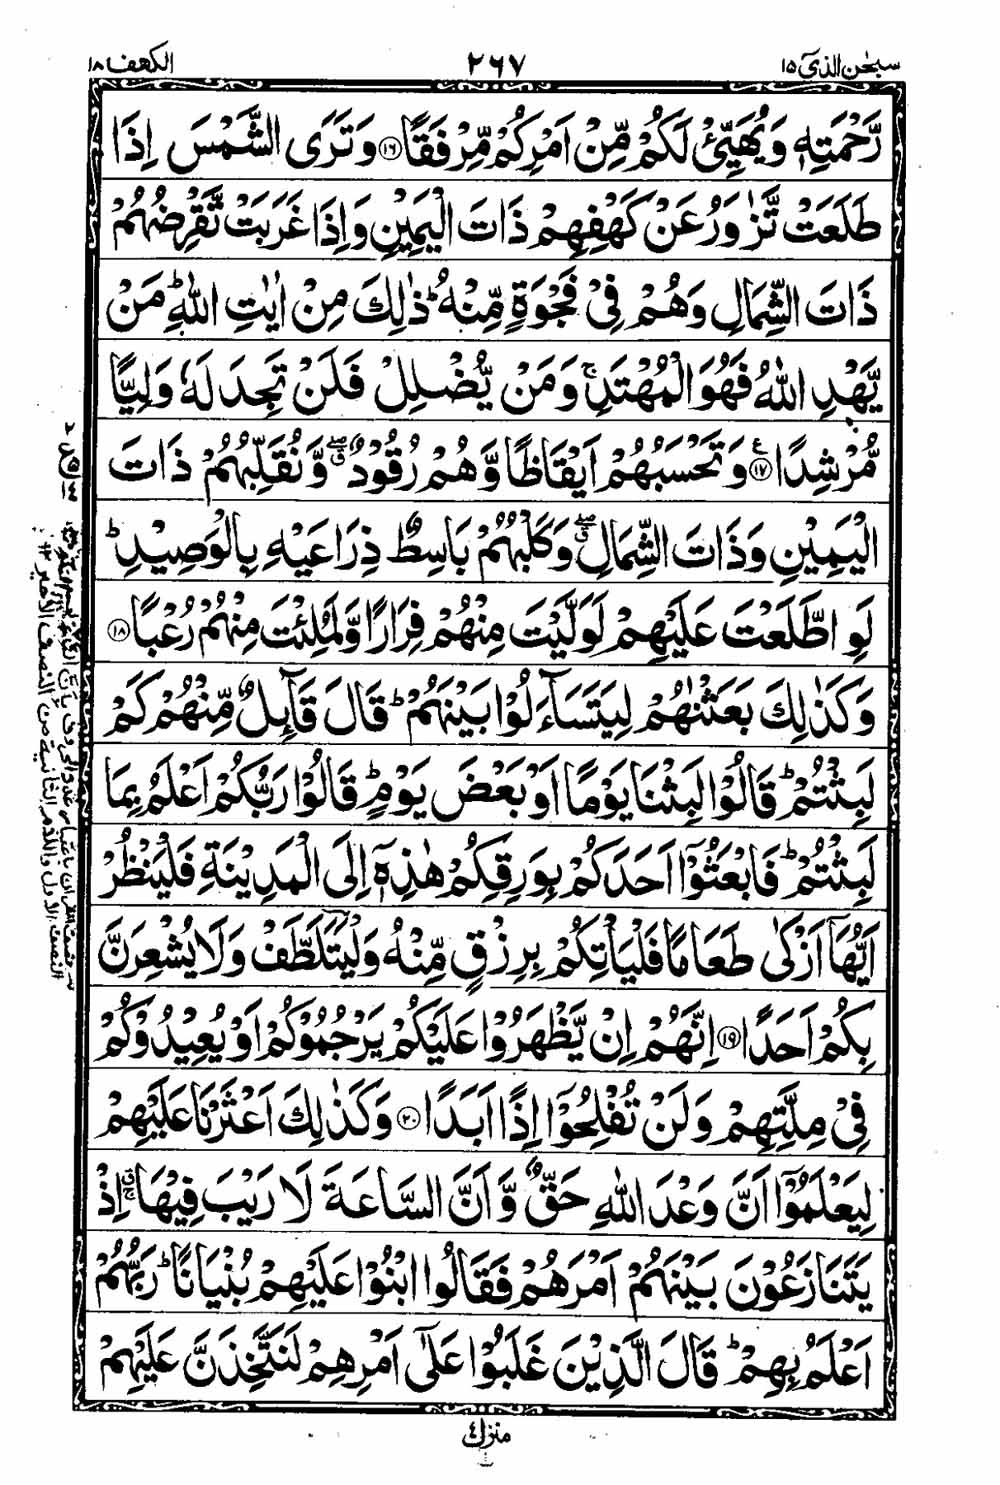 سبحٰن الذیٓ ۱۵
۲۶۷
الكهف ۱۸
رَّحْمَتِهٖ وَيُهَيِّئْ لَكُمْ مِّنْ اَمْرِكُمْ مِّرْفَقًا ﴿۱۶﴾ وَتَرَى الشَّمْسَ اِذَا
طَلَعَتْ تَّزٰوَرُ عَنْ كَهْفِهِمْ ذَاتَ الْيَمِيْنِ وَاِذَا غَرَبَتْ تَّقْرِضُهُمْ
ذَاتَ الشِّمَالِ وَهُمْ فِيْ فَجْوَةٍ مِّنْهُ ؕ ذٰلِكَ مِنْ اٰيٰتِ اللّٰهِ ؕ مَنْ
يَّهْدِ اللّٰهُ فَهُوَ الْمُهْتَدِ ۚ وَمَنْ يُّضْلِلْ فَلَنْ تَجِدَ لَهٗ وَلِيًّا
مُّرْشِدًا ﴿۱۷﴾ وَتَحْسَبُهُمْ اَيْقَاظًا وَّهُمْ رُقُوْدٌ ۖ وَّنُقَلِّبُهُمْ ذَاتَ
الْيَمِيْنِ وَذَاتَ الشِّمَالِ ۖ وَكَلْبُهُمْ بَاسِطٌ ذِرَاعَيْهِ بِالْوَصِيْدِ ؕ
لَوِ اطَّلَعْتَ عَلَيْهِمْ لَوَلَّيْتَ مِنْهُمْ فِرَارًا وَّلَمُلِئْتَ مِنْهُمْ رُعْبًا ﴿۱۸﴾
وَكَذٰلِكَ بَعَثْنٰهُمْ لِيَتَسَآءَلُوْا بَيْنَهُمْ ؕ قَالَ قَآئِلٌ مِّنْهُمْ كَمْ
لَبِثْتُمْ ؕ قَالُوْا لَبِثْنَا يَوْمًا اَوْ بَعْضَ يَوْمٍ ؕ قَالُوْا رَبُّكُمْ اَعْلَمُ بِمَا
لَبِثْتُمْ ؕ فَابْعَثُوْٓا اَحَدَكُمْ بِوَرِقِكُمْ هٰذِهٖٓ اِلَى الْمَدِيْنَةِ فَلْيَنْظُرْ
اَيُّهَآ اَزْكٰى طَعَامًا فَلْيَاْتِكُمْ بِرِزْقٍ مِّنْهُ وَلْيَتَلَطَّفْ وَلَا يُشْعِرَنَّ
بِكُمْ اَحَدًا ﴿۱۹﴾ اِنَّهُمْ اِنْ يَّظْهَرُوْا عَلَيْكُمْ يَرْجُمُوْكُمْ اَوْ يُعِيْدُوْكُمْ
فِيْ مِلَّتِهِمْ وَلَنْ تُفْلِحُوْٓا اِذًا اَبَدًا ﴿۲۰﴾ وَكَذٰلِكَ اَعْثَرْنَا عَلَيْهِمْ
لِيَعْلَمُوْٓا اَنَّ وَعْدَ اللّٰهِ حَقٌّ وَّاَنَّ السَّاعَةَ لَا رَيْبَ فِيْهَا ۚ اِذْ
يَتَنَازَعُوْنَ بَيْنَهُمْ اَمْرَهُمْ فَقَالُوا ابْنُوْا عَلَيْهِمْ بُنْيَانًا ؕ رَبُّهُمْ
اَعْلَمُ بِهِمْ ؕ قَالَ الَّذِيْنَ غَلَبُوْا عَلٰٓى اَمْرِهِمْ لَنَتَّخِذَنَّ عَلَيْهِمْ
منزل ٤